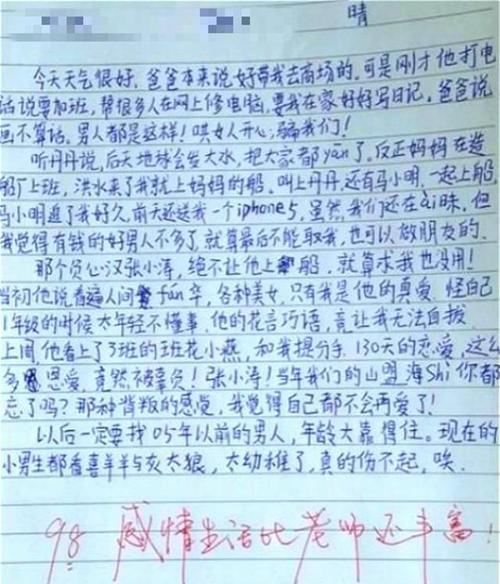 晴
今天天气很好，爸爸本来说好带我去商场的，可是刚才他打电
话说要加班，帮很多人在网上修电脑，要我在家好好写日记。爸爸说
画不算话。男人都是这样！哄女人开心，骗我们！
听丹丹说，后天地球会发大水，把大家都yān了。反正妈妈在造
船厂上班，洪水来了我就上妈妈的船。叫上丹丹，还有马小明，一起上船，
马小明追了我好久，前天还送我一个iphone5，虽然，我们还在ài昧，但
我觉得有钱的好男人不多了，就算最后不能取我，也可以做朋友的。
那个负心汉张小涛，绝不让他上船，就算求我也没用！
当初他说看遍人间fán华，各种美女，只有我是他的真爱，怪自己
1年级的时候太年轻不懂事，他的花言巧语，竟让我无法自拔，
上周，他看上了3班的班花小燕，和我提分手，130天的恋爱，这么
多恩爱，竟然被辜负！张小涛！当年我们的山盟海Shi你都
忘了吗？那种背叛的感觉，我觉得自己都不会再爱了！
以后一定要找05年以前的男人，年龄大靠得住。现在的
小男生都看喜羊羊与灰太狼，太幼稚了，真的伤不起，唉。
98 感情生活比老师还丰富！